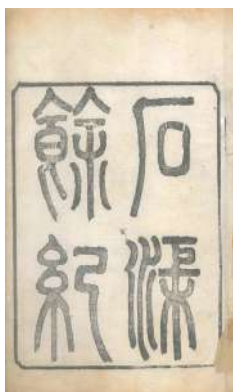 石渠
餘紀